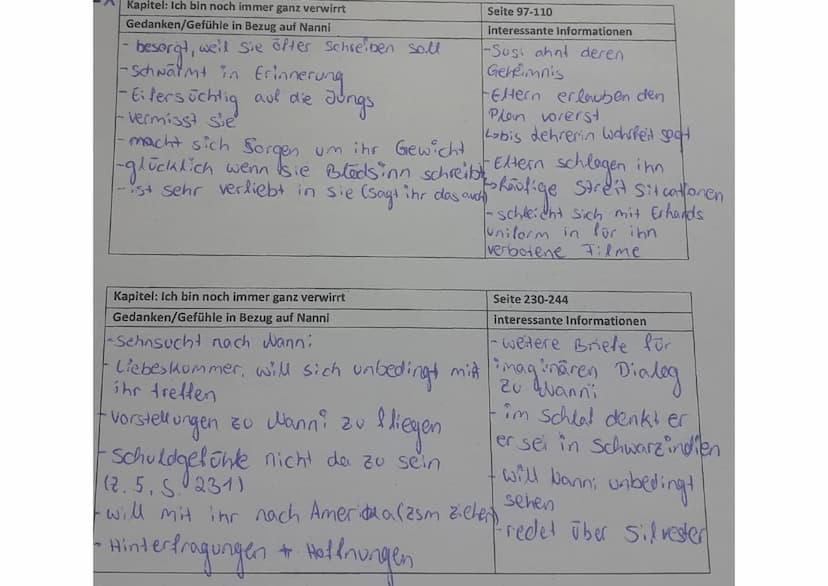 Kapitel: Ich bin noch immer ganz verwirrt
Seite 97-110
Gedanken/Gefühle in Bezug auf Nanni
Interessante Informationen
- besorgt, weil sie öfter schreiben soll
- schwärmt in Erinnerung
- Eifersüchtig auf die Jungs
- vermisst sie
- macht sich Sorgen um ihr Gewicht
- glücklich wenn sie Blödsinn schreibt
- ist sehr verliebt in sie (sagt ihr das auch)
- Susi ahnt deren
Geheimnis
- Eltern erlauben den
Plan vorerst
↳ bis Lehrerin Wahrheit sagt
- Eltern schlagen ihn
↳ häufige Streit situationen
- schleicht sich mit Erhards
uniform in für ihn
verbotene Filme
Kapitel: Ich bin noch immer ganz verwirrt
Seite 230-244
Gedanken/Gefühle in Bezug auf Nanni
interessante Informationen
- Sehnsucht nach Nanni
- Liebeskummer, will sich unbedingt mit
ihr treffen
- Vorstellungen zu Nanni zu fliegen
- Schuldgefühle nicht da zu sein
(Z. 5, S. 231)
- will mit ihr nach Amerika (zsm ziehen)
- Hinterfragungen + Hoffnungen
- weitere Briefe für
imaginären Dialog
zu Nanni
- im Schlaf denkt er
er sei in Schwarzindien
- will Nanni unbedingt
sehen
- redet über Silvester